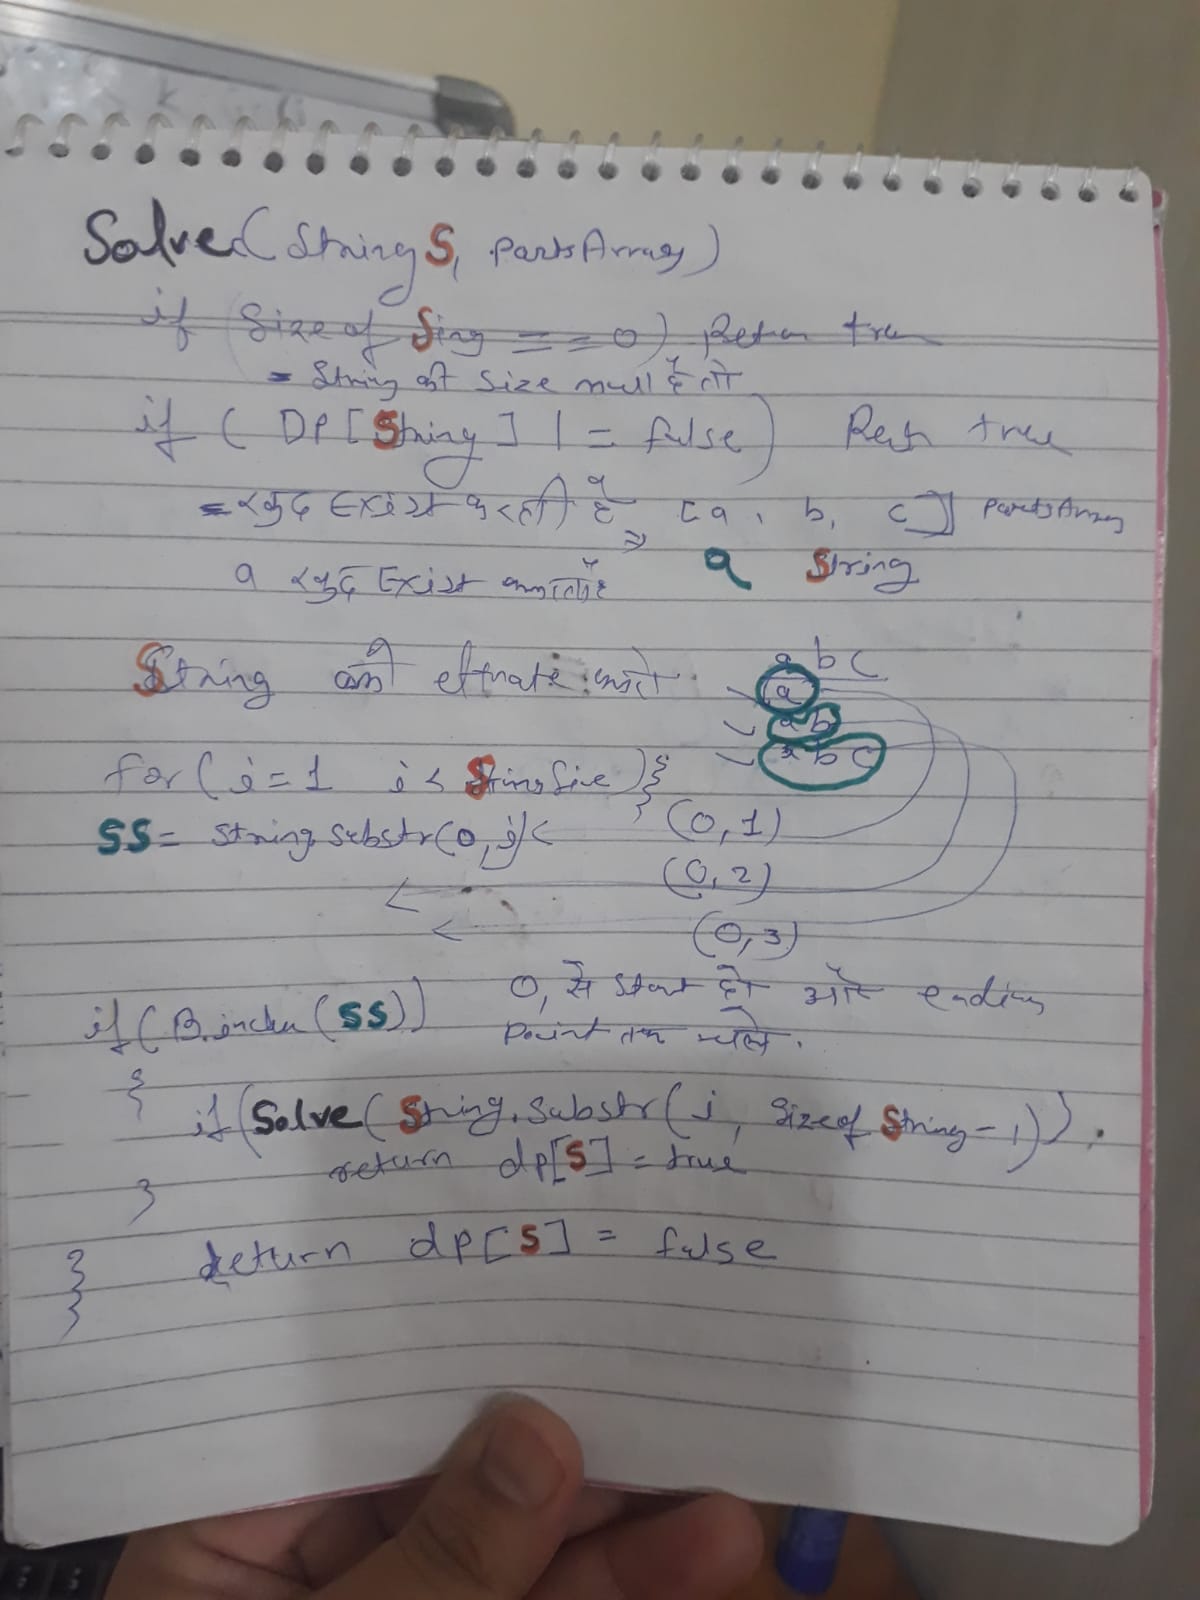 Solve( String S, partsArray)
if (Size of String == 0) Return true
= String की size null है तो
if ( DP[String] != false) Return true
= खुद Exist करती है [a, b, c]] partsArray
a खुद Exist करता है ⇒ a String
a b c
String को करो a
a b
a b c
for( i=1 i< StringSize ){
SS= String.substr(0,i)< (0,1)
(0,2)
(0,3)
if( B. (SS)) 0, से start हो और ending
point तक चले.
{
if(Solve( String.substr( i, Sizeof String-1)).
return dp[S] = true
}
return dp[S] = false
}
}